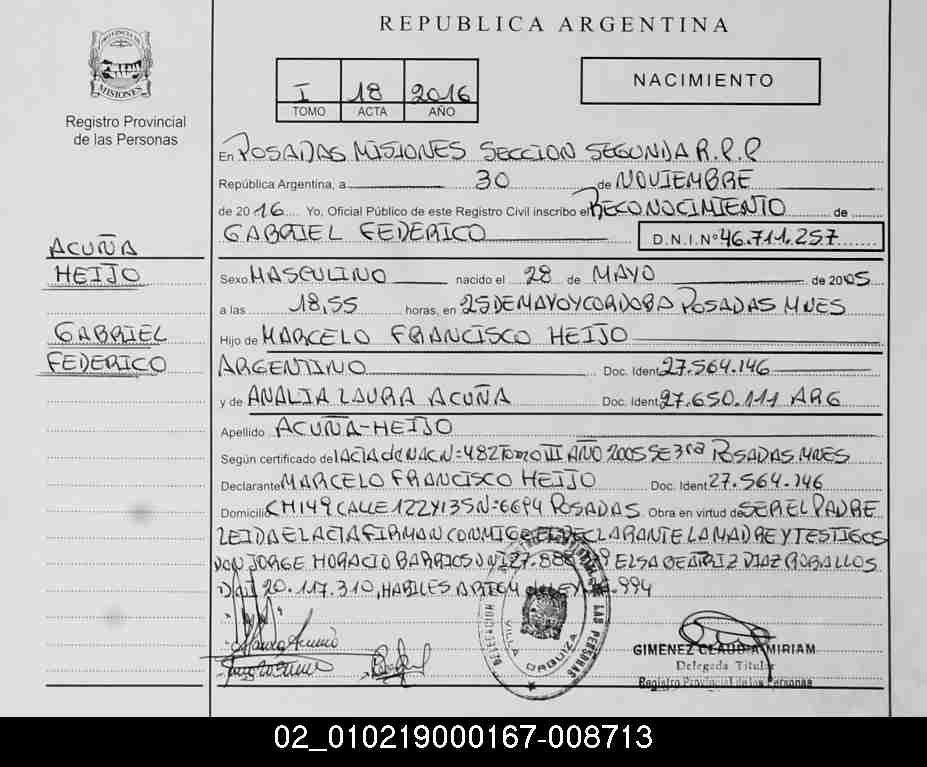 REPUBLICA ARGENTINA
PROVINCIA DE
MISIONES
Registro Provincial
de las Personas
I 18 2016
TOMO ACTA AÑO
NACIMIENTO
ACUÑA
HEIJO
GABRIEL
FEDERICO
En POSADAS MISIONES SECCION SEGUNDA R.P.P
República Argentina, a 30 de NOVIEMBRE
de 2016 Yo, Oficial Público de este Registro Civil inscribo el RECONOCIMIENTO de
GABRIEL FEDERICO D.N.I. Nº 46.711.257
Sexo MASCULINO nacido el 28 de MAYO de 2005
a las 18,55 horas, en 25 DE MAYO Y CORDOBA POSADAS MNES
Hijo de MARCELO FRANCISCO HEIJO
ARGENTINO Doc. Ident 27.564.146
y de ANALIA LAURA ACUÑA Doc. Ident 27.650.111 ARG
Apellido ACUÑA-HEIJO
Según certificado de ACTA de NAC Nº 482 Tomo III AÑO 2005 SE 3ra POSADAS MNES
Declarante MARCELO FRANCISCO HEIJO Doc. Ident 27.564.146
Domicilio CH 149 CALLE 122 Y 135 Nº 6694 POSADAS Obra en virtud de SER EL PADRE
LEIDA EL ACTA FIRMAN CONMIGO EL DECLARANTE LA MADRE Y TESTIGOS
DON JORGE HORACIO BARRIOS D.N.I 27. ELSA BEATRIZ DIAZ ROBALLOS
D.N.I 20.117.310, HABILES
VILLA URQUIZA
LAS PERSONAS
GIMENEZ CLAUDIA MIRIAM
Delegada Titular
Registro Provincial de las Personas
02_010219000167-008713